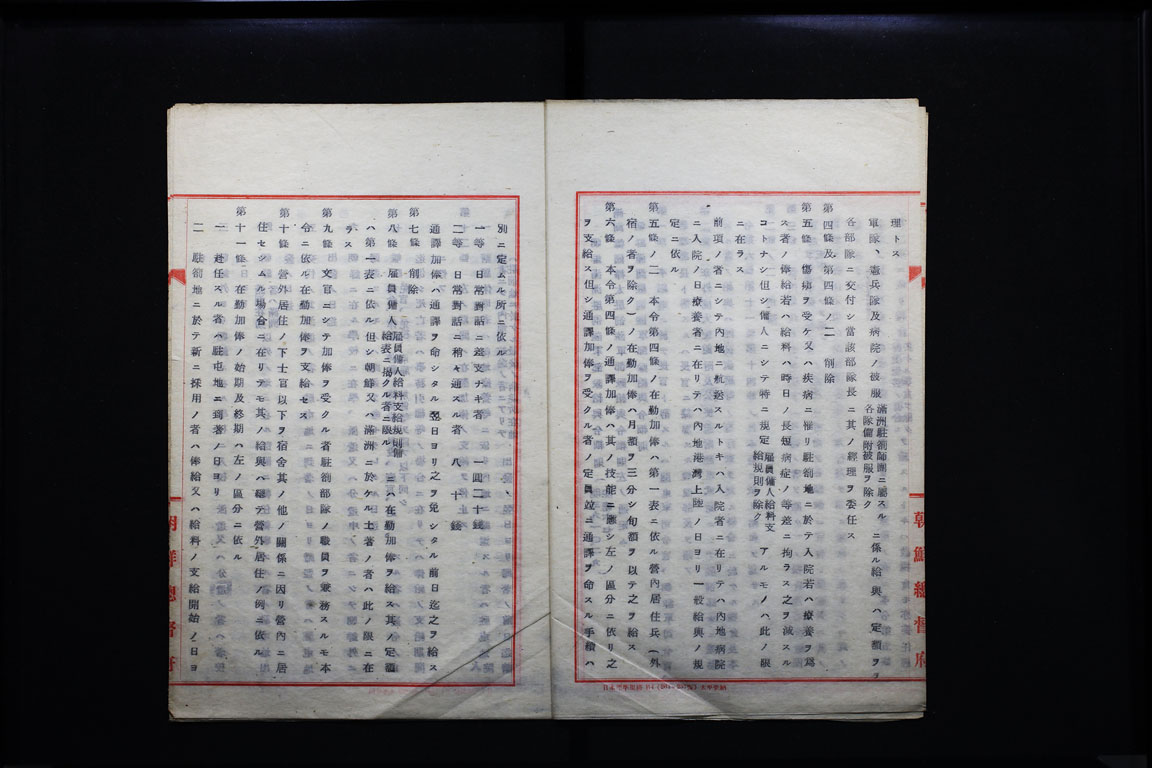 理トス
軍隊、憲兵隊及病院ノ被服 滿洲駐劄師團ニ屬スル各隊備附被服ヲ除ク ニ係ル給與ハ定額ヲ
各部隊ニ交付シ當該部隊長ニ其ノ經理ヲ委任ス
第四條及第四條ノ二 削除
第五條 傷痍ヲ受ケ又ハ疾病ニ罹リ駐劄地ニ於テ入院若ハ療養ヲ爲
ス者ノ俸給若ハ給料ハ時日ノ長短病症ノ等差ニ拘ラス之ヲ減スル
コトナシ但シ傭人ニシテ特ニ規定 雇員傭人給料支給規則ヲ除ク アルモノハ此ノ限
ニ在ラス
前項ノ者ニシテ內地ニ航送スルトキハ入院者ニ在リテハ內地病院
ニ入院ノ日療養者ニ在リテハ內地港灣上陸ノ日ヨリ一般給與ノ規
定ニ依ル
第五條ノ二 本令第四條ノ在勤加俸ハ第一表ニ依ル營內居住兵(外
宿ノ者ヲ除ク)ノ在勤加俸ハ月額ヲ三分シ旬額ヲ以テ之ヲ給ス
第六條 本令第四條ノ通譯加俸ハ其ノ技能ニ應シ左ノ區分ニ依リ之
ヲ支給ス但シ通譯加俸ヲ受クル者ノ定員竝ニ通譯ヲ命スル手續ハ
朝鮮總督府
別ニ定ムル所ニ依ル
一等 日常對話ニ差支ナキ者 一圓二十錢
二等 日常對話ニ稍々通スル者 八十錢
通譯加俸ハ通譯ヲ命シタル翌日ヨリ之ヲ免シタル前日迄之ヲ給ス
第七條 削除
第八條 雇員傭人 雇員傭人給料支給規則傭給表ニ揭クル者ニ限ル ニハ在勤加俸ヲ給ス其ノ定額
ハ第一表ニ依ル但シ朝鮮又ハ滿洲ニ於ケル土著ノ者ハ此ノ限ニ在
ラス
第九條 文官ニシテ加俸ヲ受クル者駐劄部隊ノ職員ヲ兼務スルモ本
令ニ依ル在勤加俸ヲ支給セス
第十條 營外居住ノ下士官以下ヲ宿舍其ノ他ノ關係ニ因リ營內ニ居
住セシムル場合ニ在リテモ其ノ給與ハ總テ營外居住ノ例ニ依ル
第十一條 在勤加俸ノ始期及終期ハ左ノ區分ニ依ル
一 赴任スル者ハ駐屯地ニ到著ノ日ヨリ
二 駐劄地ニ於テ新ニ採用ノ者ハ俸給又ハ給料ノ支給開始ノ日ヨ
朝鮮總督府